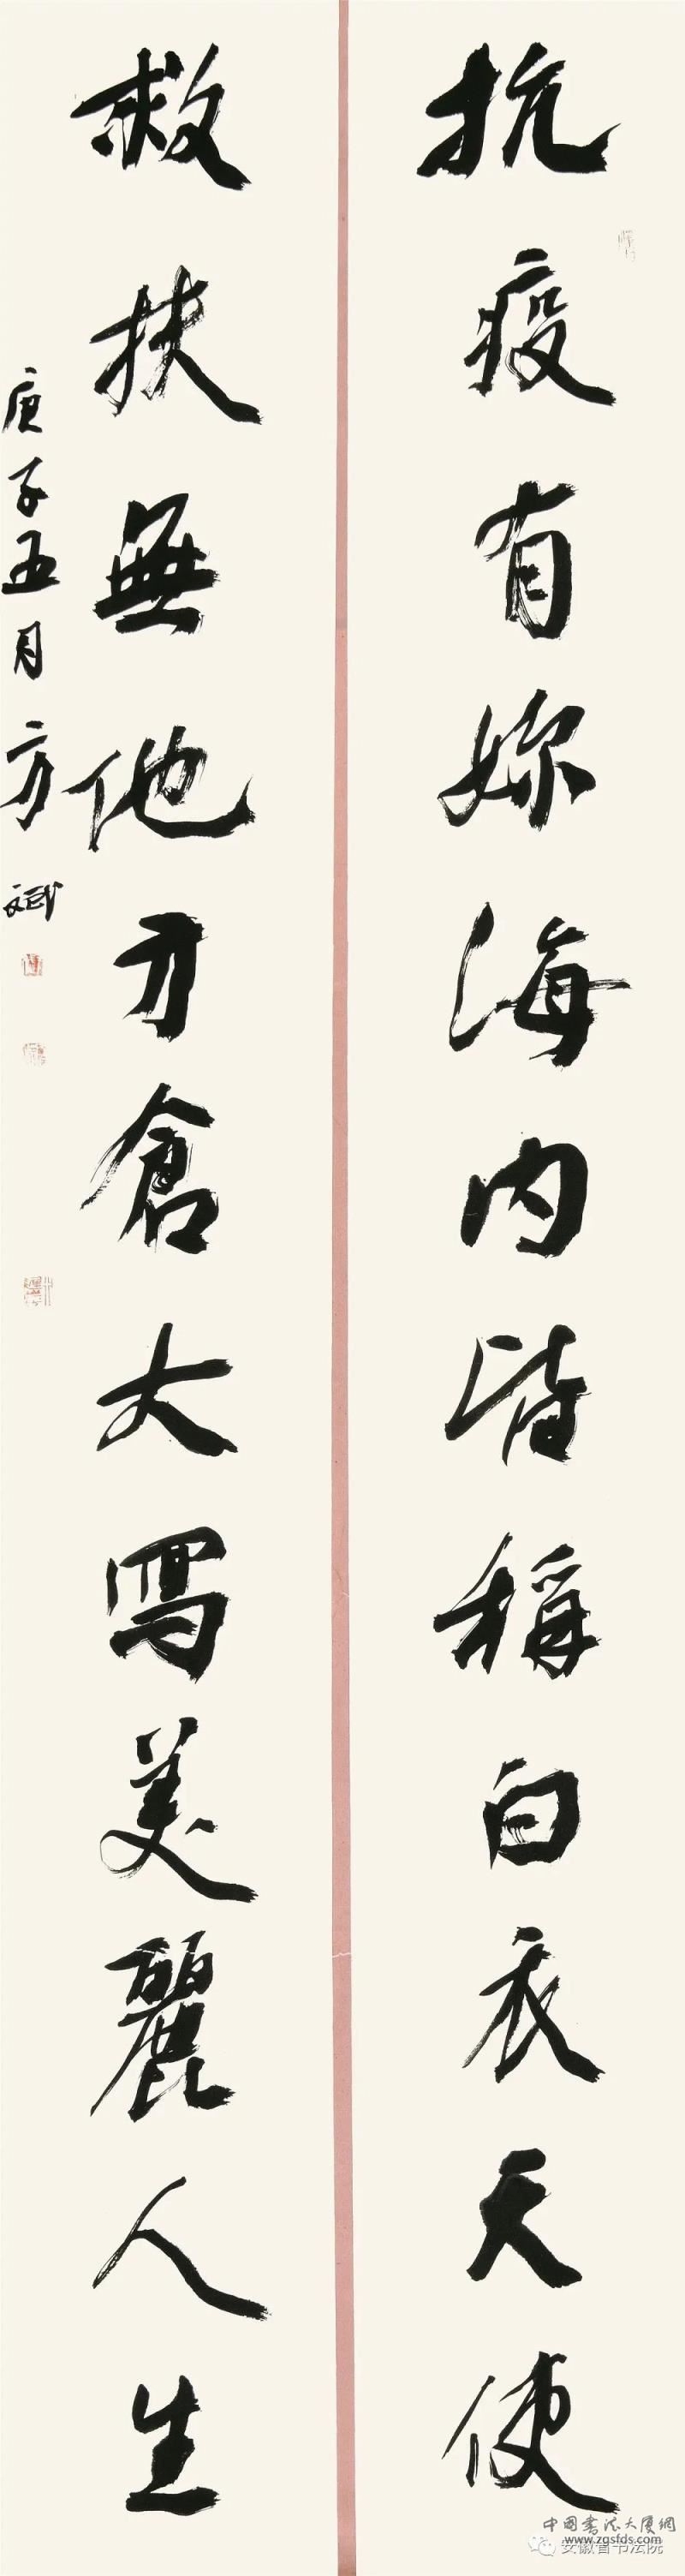 抗疫有妳海内皆稱白衣天使
救扶無他方倉大寫美麗人生
庚子五月方斌
中国书法大厦網
www.zgsfds.com
安徽省书法院